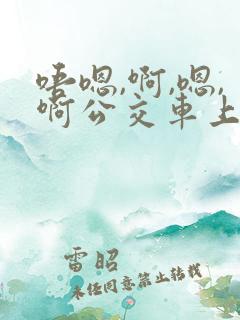 唔嗯,啊,嗯,
啊公交車上
雷昭
未经同意禁止转载